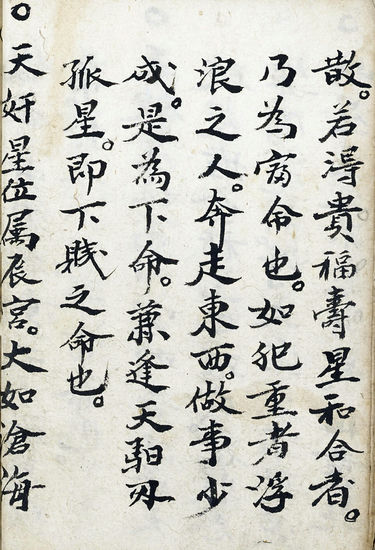 散。若淂貴福壽星和合者。
乃為富命也。如犯重者浮
浪之人。奔走東西。做事少
成。是為下命。兼逢天馹刄
孤星。即下賎之命也。
○天奸星位属辰宮。大如滄海